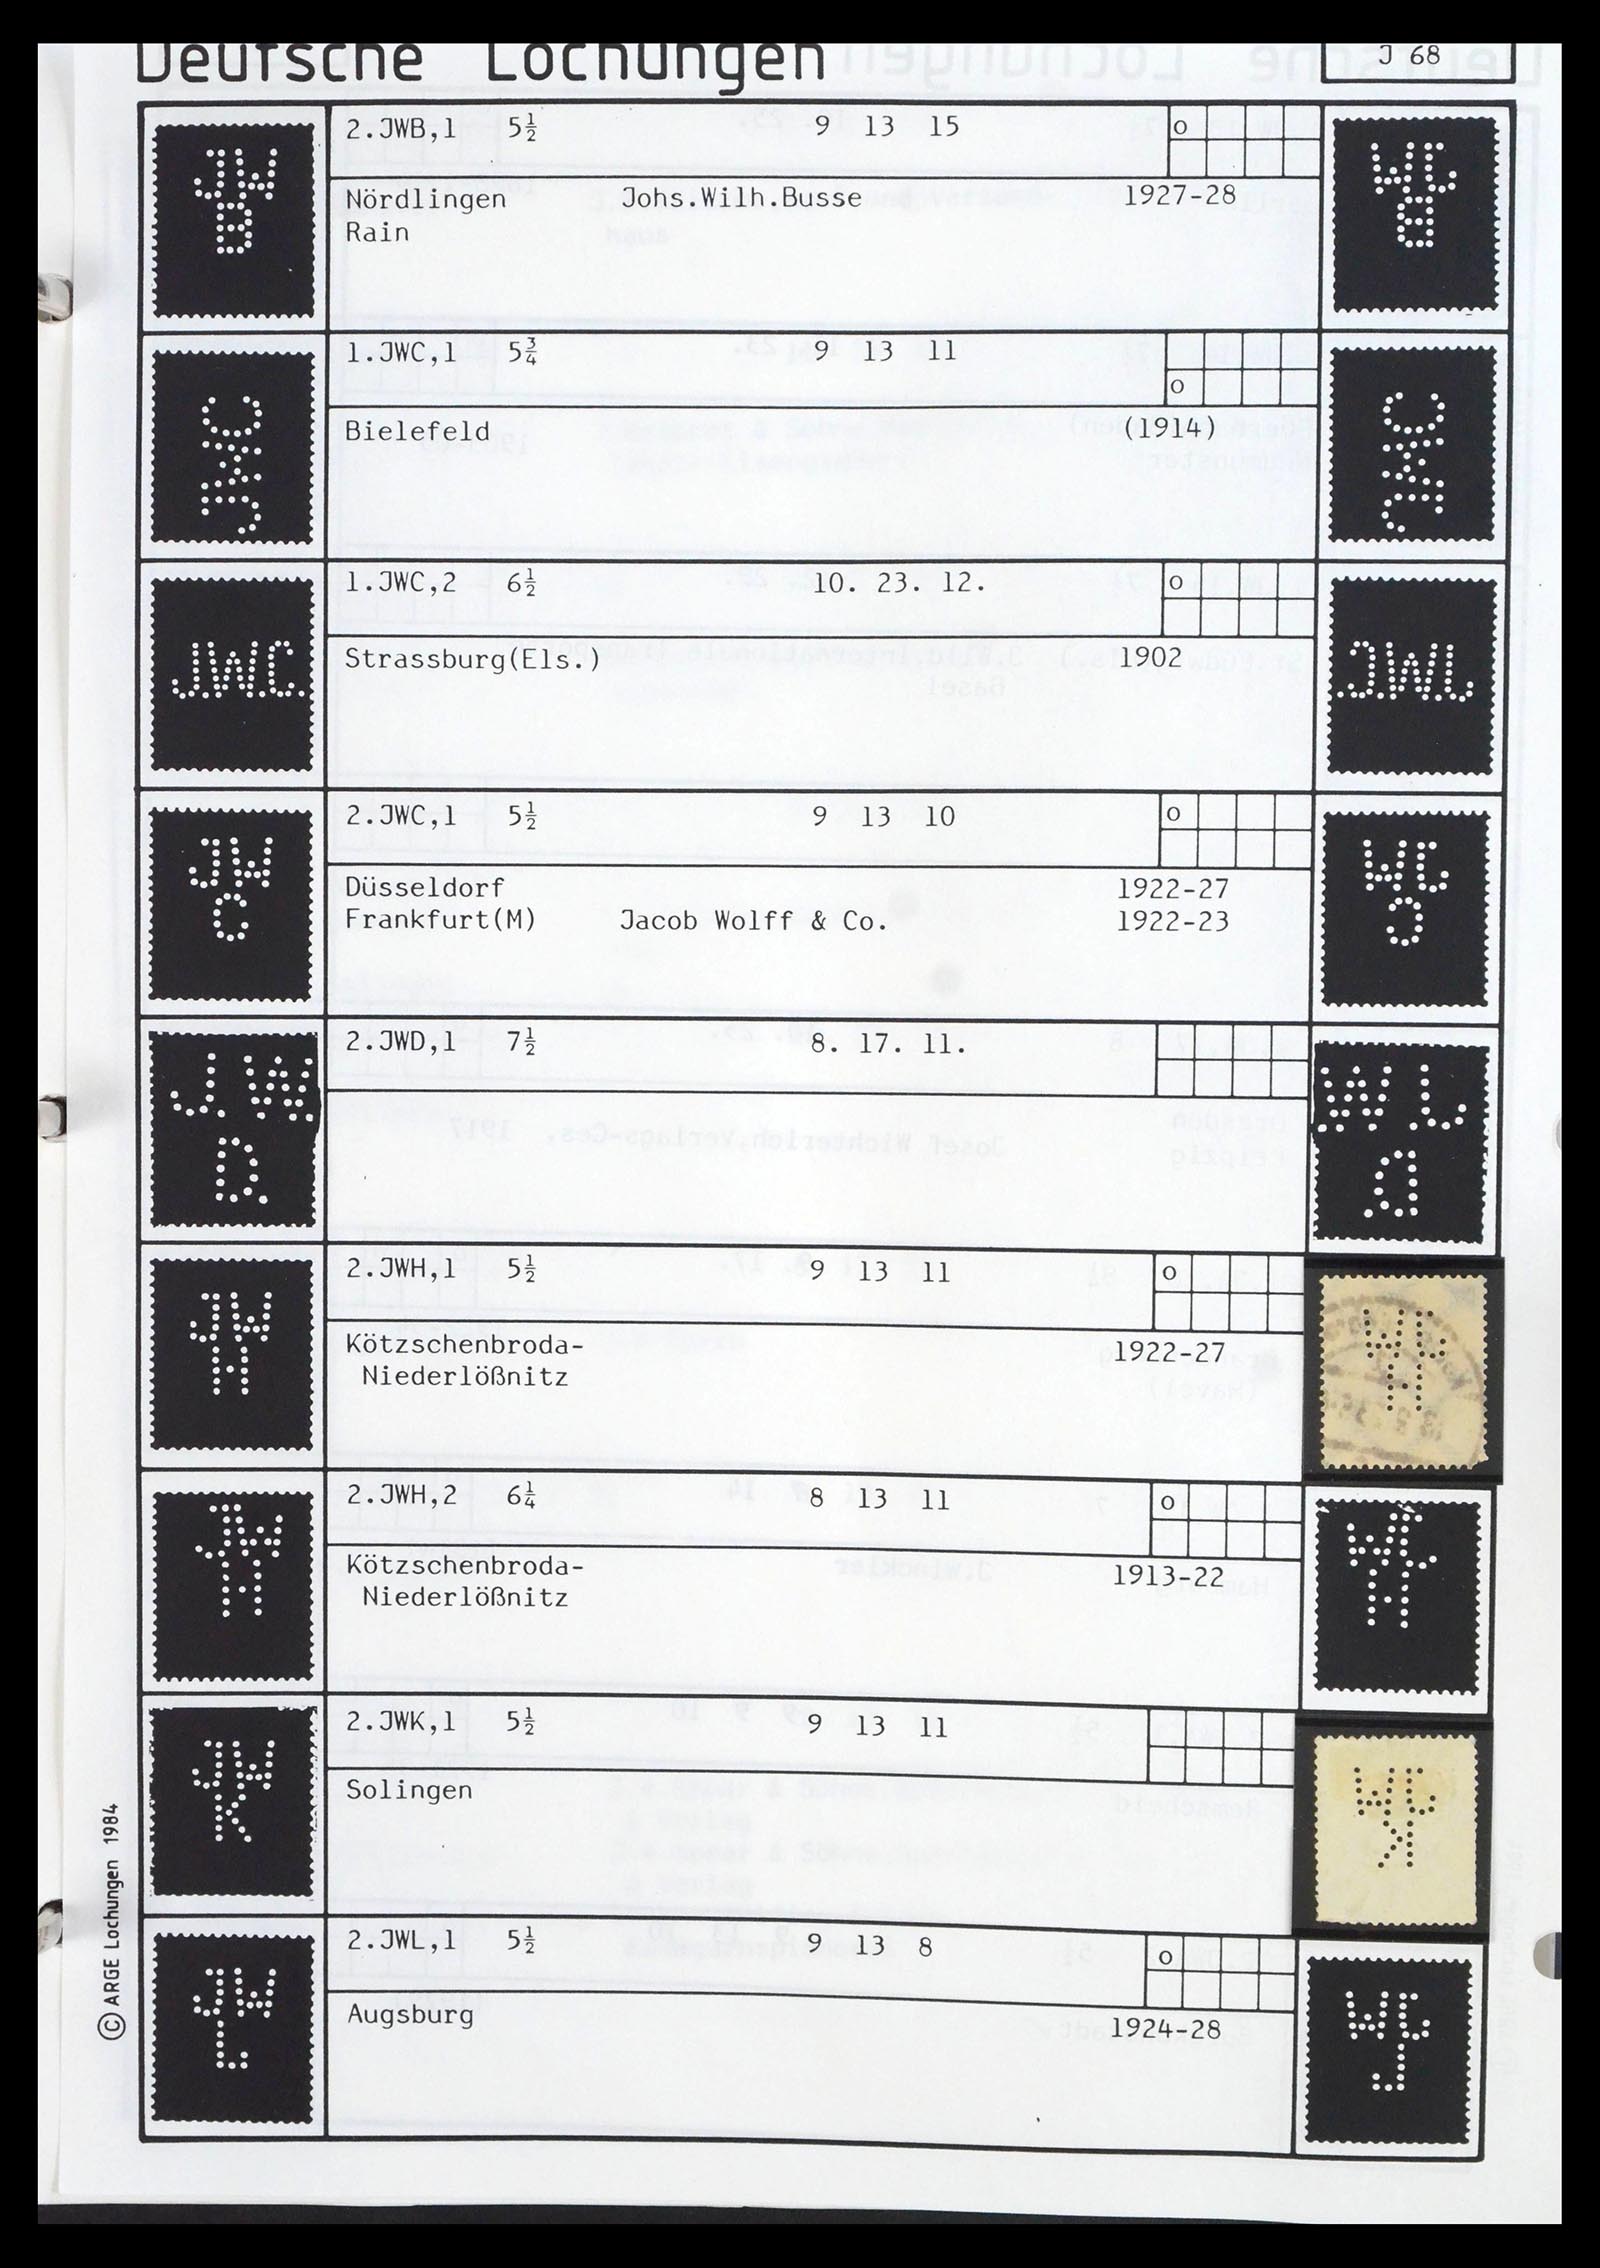 Deutsche Lochungen
J 68
2.JWB,1 5½ 9 13 15 o
Nördlingen Johs.Wilh.Busse 1927-28
Rain
JW
B
1.JWC,1 5¾ 9 13 11
o
Bielefeld (1914)
JWC
1.JWC,2 6½ 10. 23. 12. o
Strassburg(Els.) 1902
J.W.C.
2.JWC,1 5½ 9 13 10 o
Düsseldorf 1922-27
Frankfurt(M) Jacob Wolff & Co. 1922-23
JW
C
2.JWD,1 7½ 8. 17. 11.
J.W
D.
2.JWH,1 5½ 9 13 11 o
Kötzschenbroda- 1922-27
Niederlößnitz
JW
H
2.JWH,2 6¼ 8 13 11 o
Kötzschenbroda- 1913-22
Niederlößnitz
JW
H
2.JWK,1 5½ 9 13 11
Solingen
JW
K
2.JWL,1 5½ 9 13 8 o
Augsburg 1924-28
JW
L
© ARGE Lochungen 1984